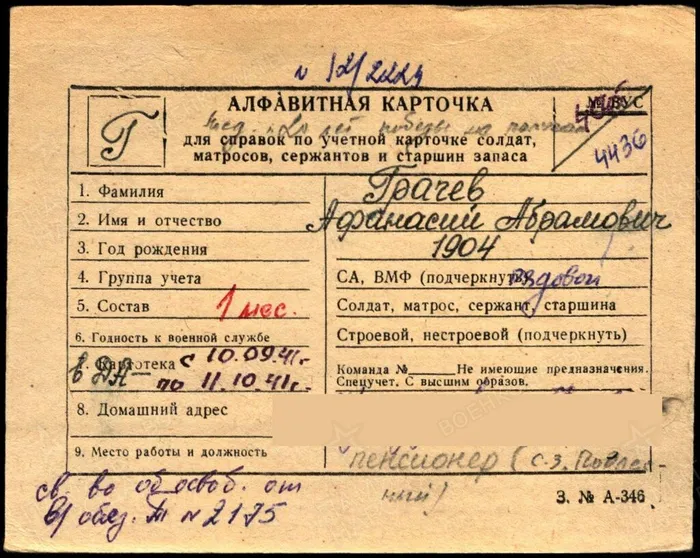 N 12/2224
АЛФАВИТНАЯ КАРТОЧКА
№ ВУС
Г
Мед. "20 лет победы не получал
4436
для справок по учетной карточке солдат,
матросов, сержантов и старшин запаса
1. Фамилия
Грачев
2. Имя и отчество
Афанасий Абрамович
3. Год рождения
1904
4. Группа учета
СА, ВМФ (подчеркнуть)
рядовой
5. Состав
1 мес.
Солдат, матрос, сержант, старшина
6. Годность к военной службе
Строевой, нестроевой (подчеркнуть)
7. Картотека
с 10.09.41г.
в ДА —
по 11.10.41г.
Команда № Не имеющие предназначения.
Спецучет. С высшим образов.
8. Домашний адрес
9. Место работы и должность
пенсионер (с-з.
св. во об освоб. от
З. № А-346
в/обяз. № 2175